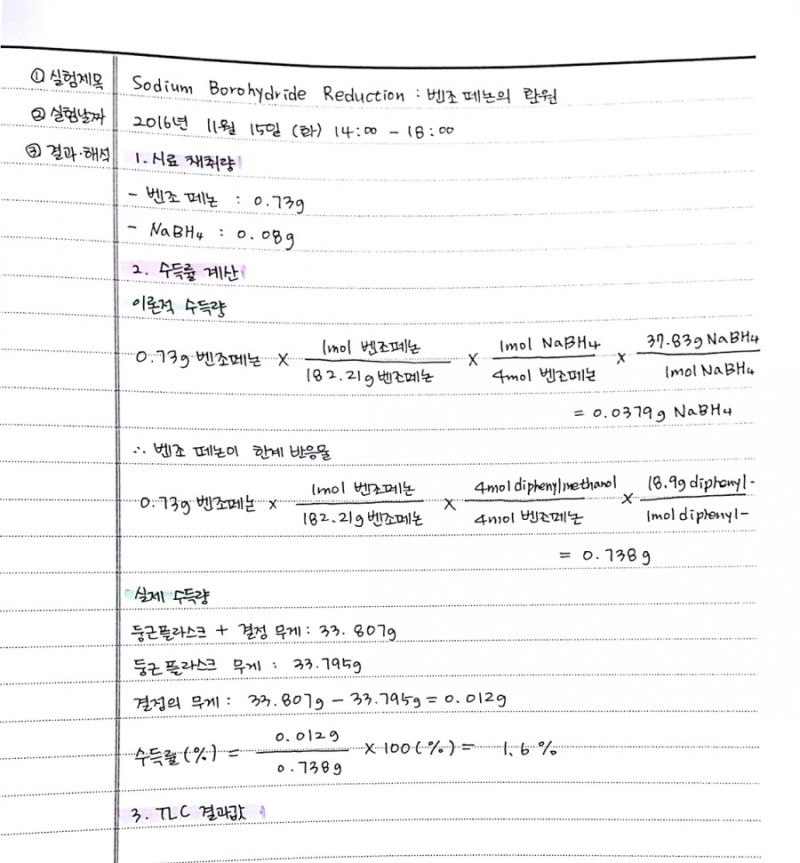 ① 실험제목 Sodium Borohydride Reduction : 벤조페논의 환원
② 실험날짜 2016년 11월 15일 (화) 14:00 - 18:00
③ 결과·해석 1. 시료 채취량
- 벤조페논 : 0.73g
- NaBH4 : 0.08g
2. 수득률 계산
이론적 수득량
0.73g 벤조페논 × 1mol 벤조페논 / 182.21g 벤조페논 × 1mol NaBH4 / 4mol 벤조페논 × 37.83g NaBH4 / 1mol NaBH4
= 0.0379g NaBH4
∴ 벤조페논이 한계 반응물
0.73g 벤조페논 × 1mol 벤조페논 / 182.21g 벤조페논 × 4mol diphenylmethanol / 4mol 벤조페논 × 18.9g diphenyl- / 1mol diphenyl-
= 0.738g
실제 수득량
둥근플라스크 + 결정 무게 : 33.807g
둥근플라스크 무게 : 33.795g
결정의 무게 : 33.807g - 33.795g = 0.012g
수득률(%) = 0.012g / 0.738g × 100(%) = 1.6%
3. TLC 결과값